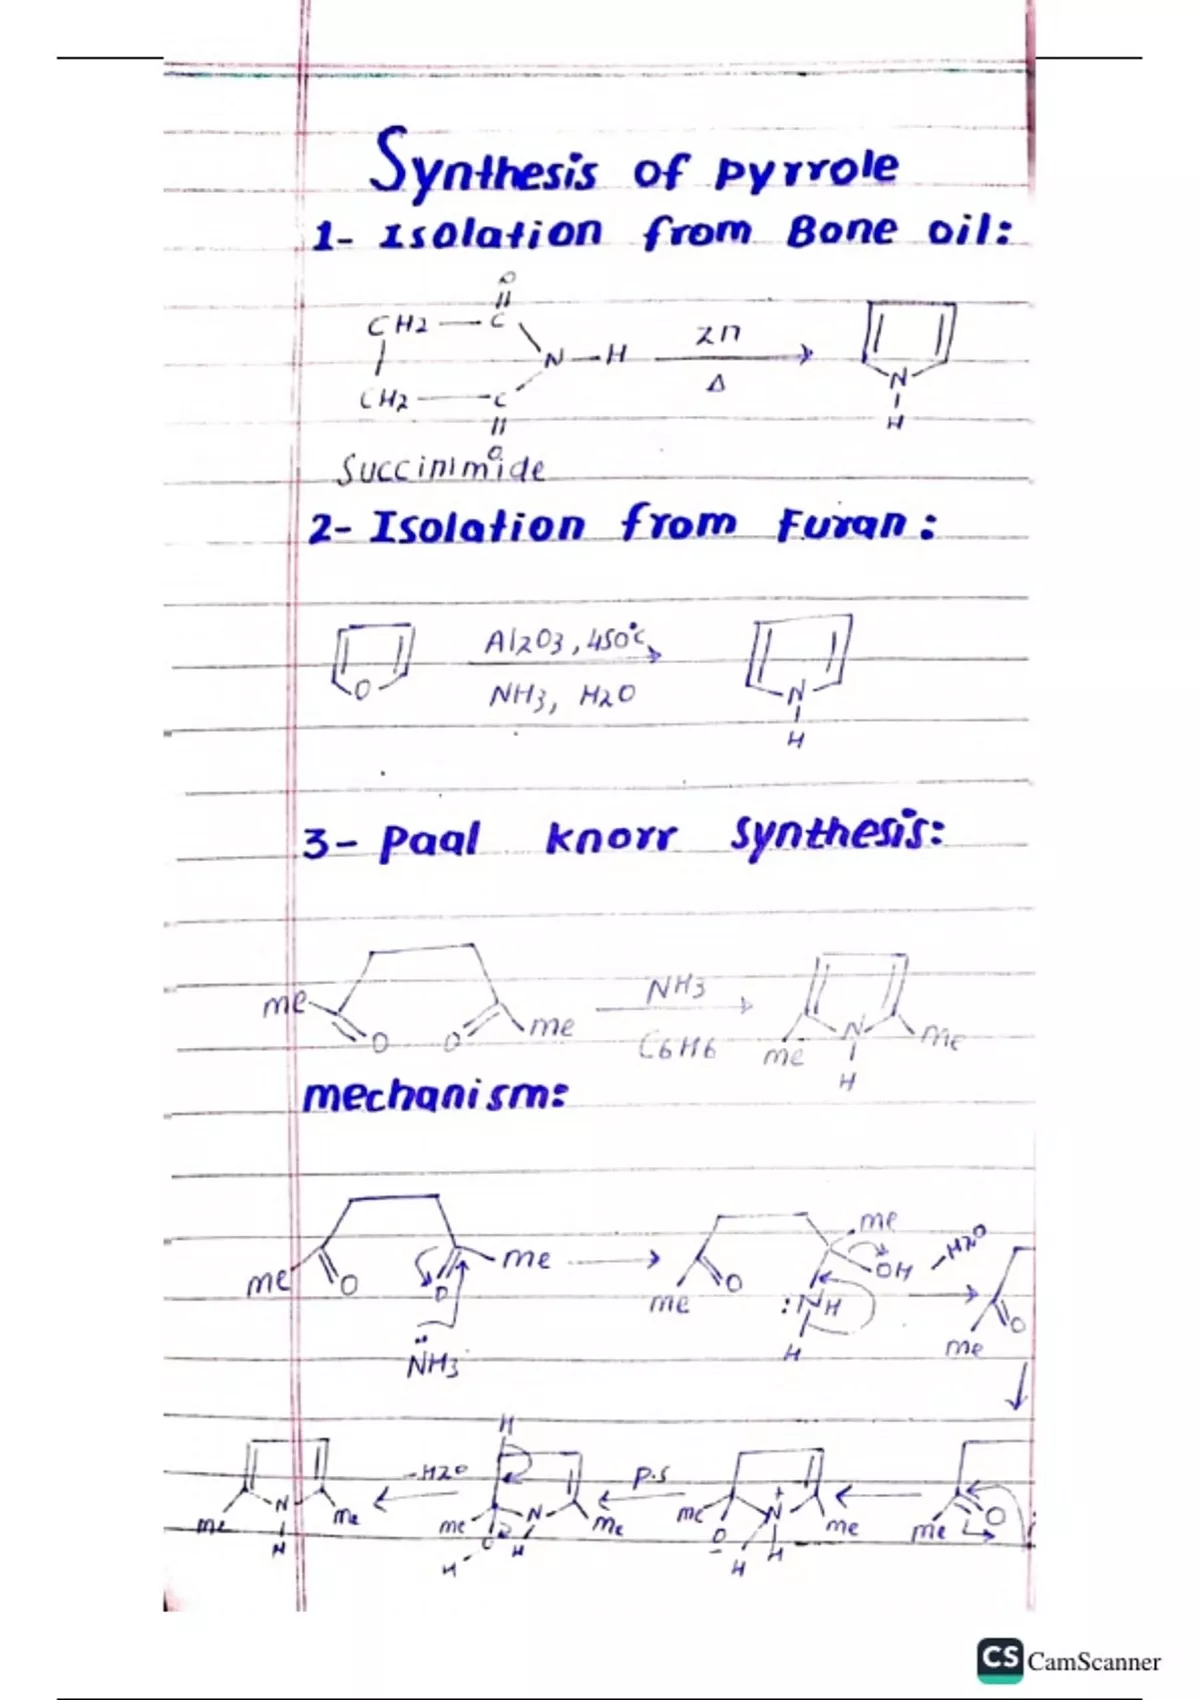 Synthesis of pyrrole
1- Isolation from Bone oil:
O
CH2 — C
N — H
Zn
Δ
CH2 — C
O
N
H
Succinimide
2- Isolation from Furan:
Al2O3, 450°C
NH3, H2O
O
N
H
3- Paal knorr synthesis:
me
O
O
me
NH3
C6H6
me
N
H
me
mechanism:
me
O
O
me
NH3
me
O
me
OH
:NH
H
-H2O
me
O
me
N
H
me
-H2O
H
me
O
H
N
H
me
P.S
me
O
-
N
+
H
H
me
me
O
CS CamScanner